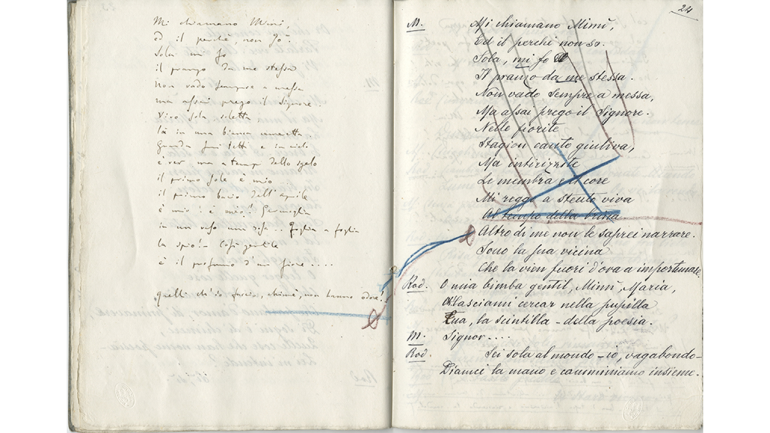 Mi chiamano Mimì,
ed il perchè non so.
Sola mi fo
il pranzo da me stessa
Non vado sempre a messa
ma assai prego il Signore.
Vivo sola soletta
là in una bianca cameretta
Guardo sui tetti e in cielo
è ver, ma a tempo dello sgelo
il primo sole è mio
il primo bacio dell'aprile
è mio! è mio! Germoglia
in un vaso una rosa .. Foglia a foglia
la spio! Così gentile
è il profumo d'un fiore....
Quelli ch'io faccio, ahimè, non hanno odore!
24
M. Mi chiamano Mimì,
Ed il perchè non so.
Sola, mi fo
Il pranzo da me stessa.
Non vado sempre a messa,
Ma assai prego il Signore.
Nelle fiorite
Stagion canto giuliva,
Ma intirizzite
Le membra e il core
Mi reggo a stento viva
Al tempo della bruma
Altro di me non le saprei narrare.
Sono la sua vicina
Che la vien fuori d'ora a importunare
Rod. O mia bimba gentil, Mimì, Maria,
lasciami cercar nella pupilla
Tua, la scintilla della poesia.
M. Signor....
Rod. Sei sola al mondo - io, vagabondo -
Diamci la mano e camminiamo insieme.